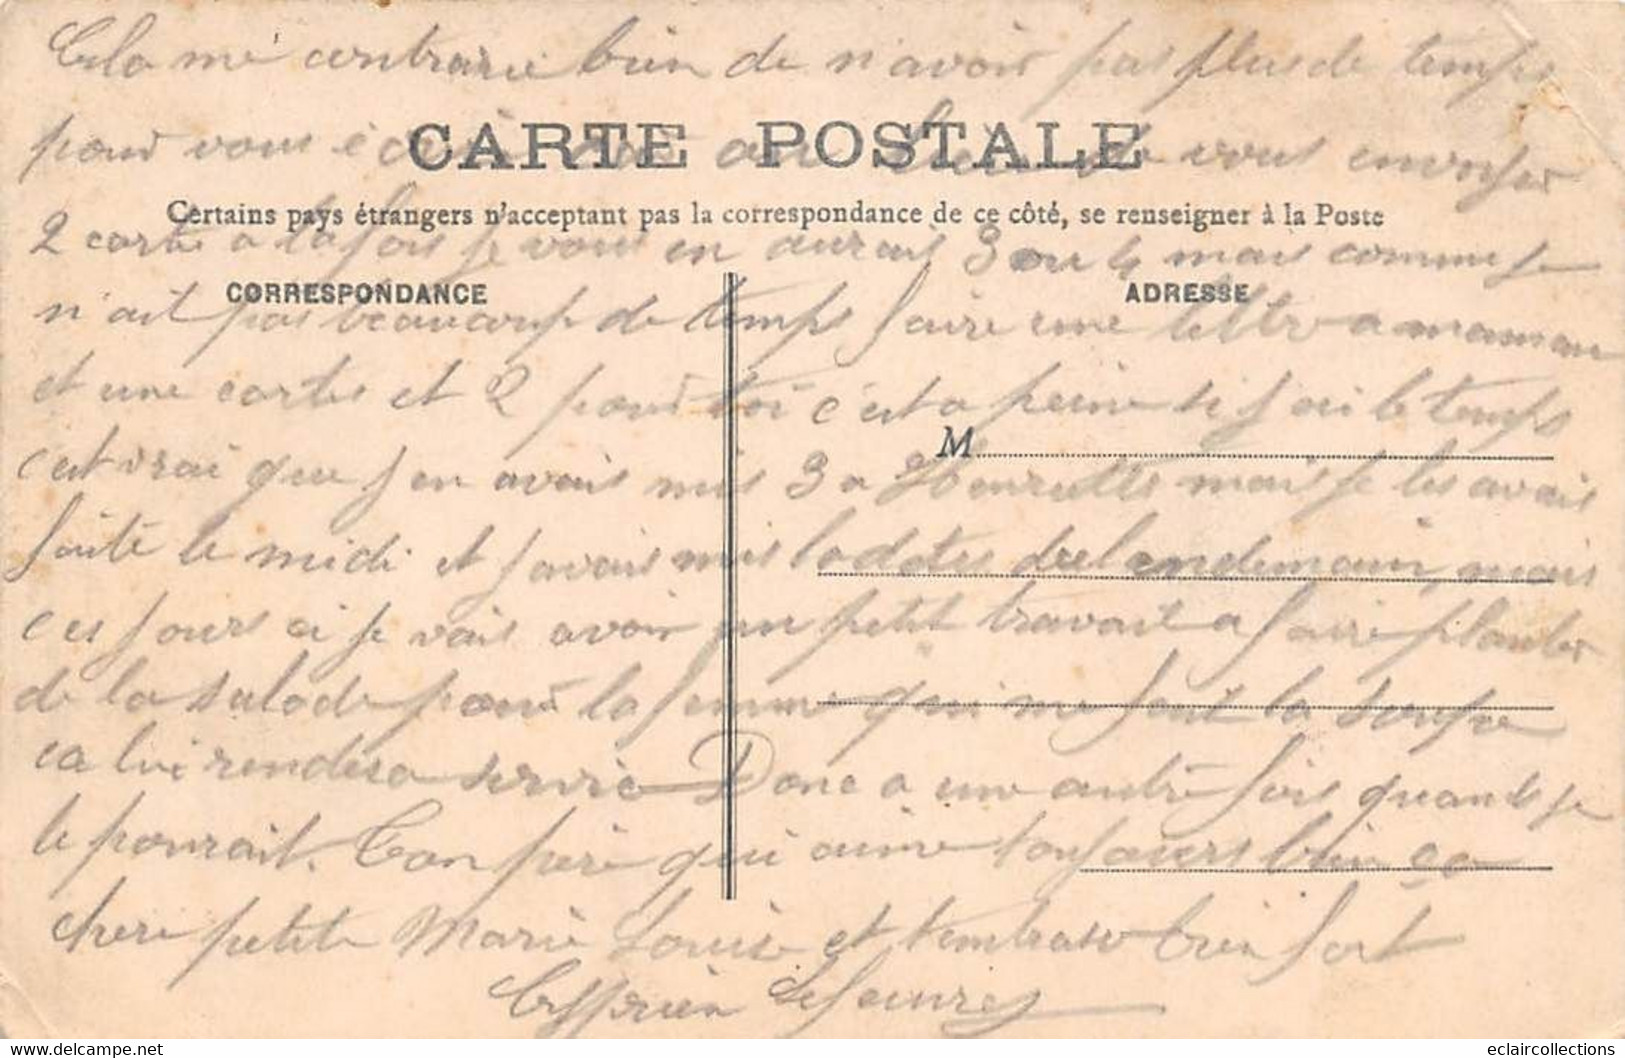 Cela me contrarie bien de n'avoir pas plus de temps
CARTE POSTALE
pour vous écrire au lieu de vous envoyer
Certains pays étrangers n'acceptent pas la correspondance de ce côté, se renseigner à la Poste
2 carte a la fois je vous en aurais 3 ou 4 mais comme je
CORRESPONDANCE
ADRESSE
n'ait pas beaucoup de temps faire une lettre a maman
et une cartes et 2 pour toi c'est a peine si j'ai le temps
M
c'est vrai que j'en avais mis 3 a Henriette mais je les avais
faite le midi et j'avais mis la dates du lendemain, mais
ces jours ci je vais avoir un petit travail a faire planter
de la salade pour la femme qui me fait la soupe
ca lui rendera servie Donc a une autre fois quand je
le pourait. Ton père qui aime toujours bien ça
chère petite Marie Louise et t'embrase bien fort
Cyprien
WWW.DELCAMPE.NET
eclaircollections